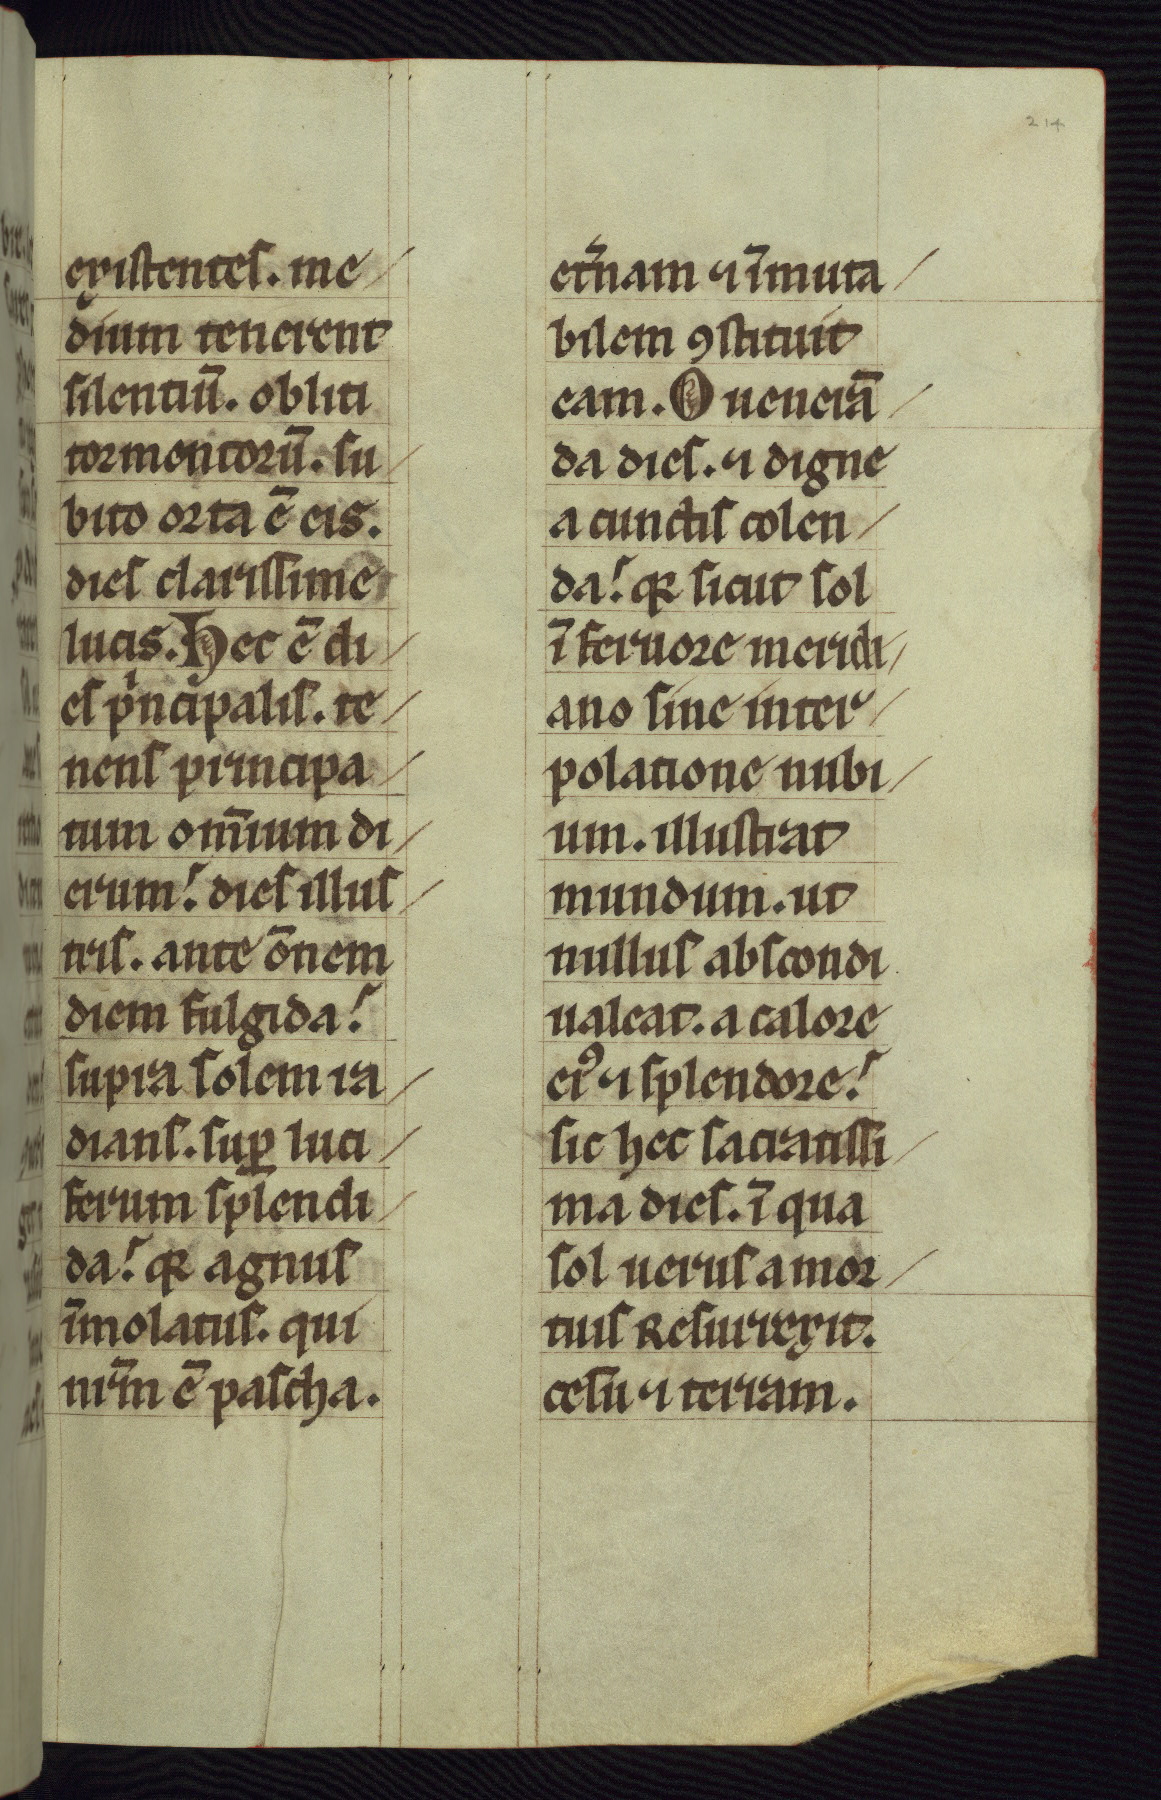 214
existentes. me
dium tenerent
silentiū. obliti
tormentorū. su
bito orta ē eis.
dies clarissime
lucis. Hec ē di
es pͥncipalis. te
nens principa
tum om̄ium di
erum! dies illus
tris. ante ōnem
diem fulgida!
supra solem ra
dians. suꝑ luci
ferum splendi
da! qꝛ agnus
īmolatus. qui
nr̄m ē pascha.
et̄nam ⁊ īmuta
bilem ꝯstituit
eam. O uenerā
da dies. ⁊ digne
a cunctis colen
da! qꝛ sicut sol
ī feruore meridi
ano sine inter
polatione nubi
um. illustrat
mundum. ut
nullus abscondi
ualeat. a calore
eiꝰ ⁊ splendore!
sic hec sacratissi
ma dies. ī qua
sol uerus a mor
tuis Resurrexit.
celū ⁊ terram.